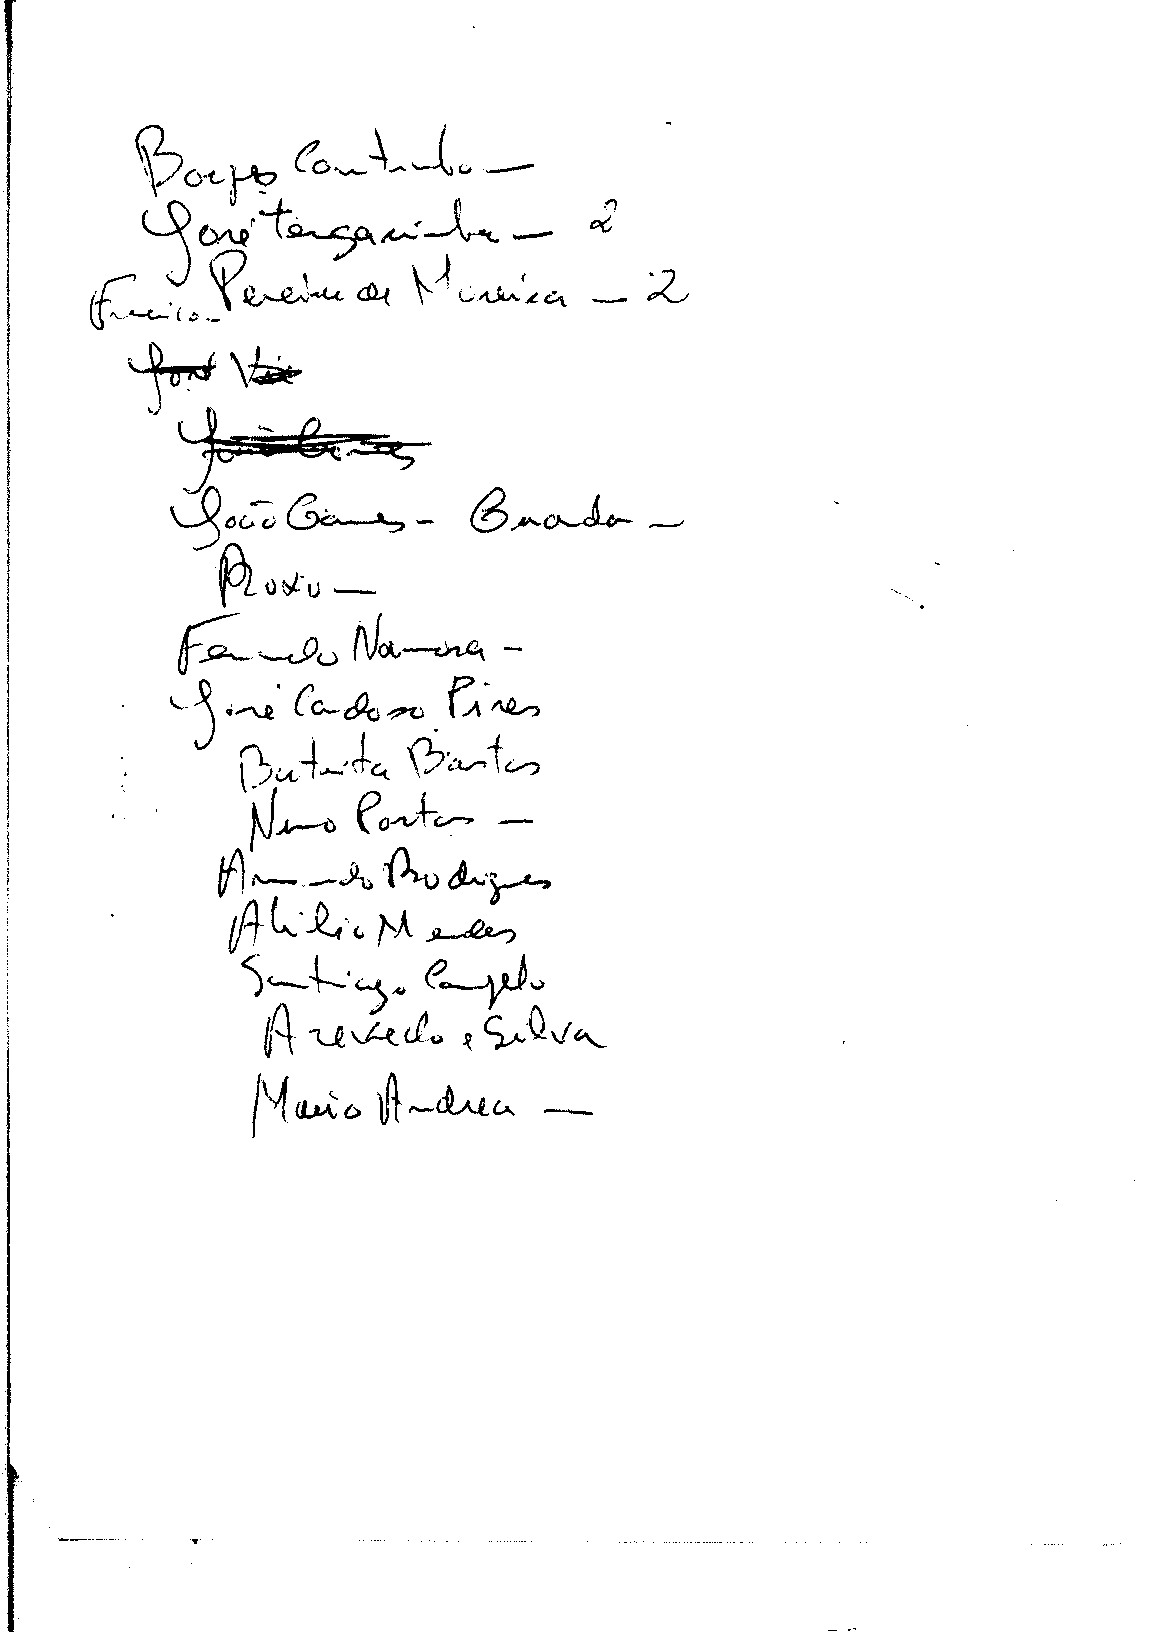 Borges Coutinho —
José Tengarrinha — 2
Francisco Pereira de Moura — 2
João Gomes - Guarda —
Roxo —
Fernando Namora -
José Cardoso Pires
Batista Bastos
Nuno Portas —
Armando Rodrigues
Abílio Mendes
Santiago Campelo
Azevedo e Silva
Mario Andrea —